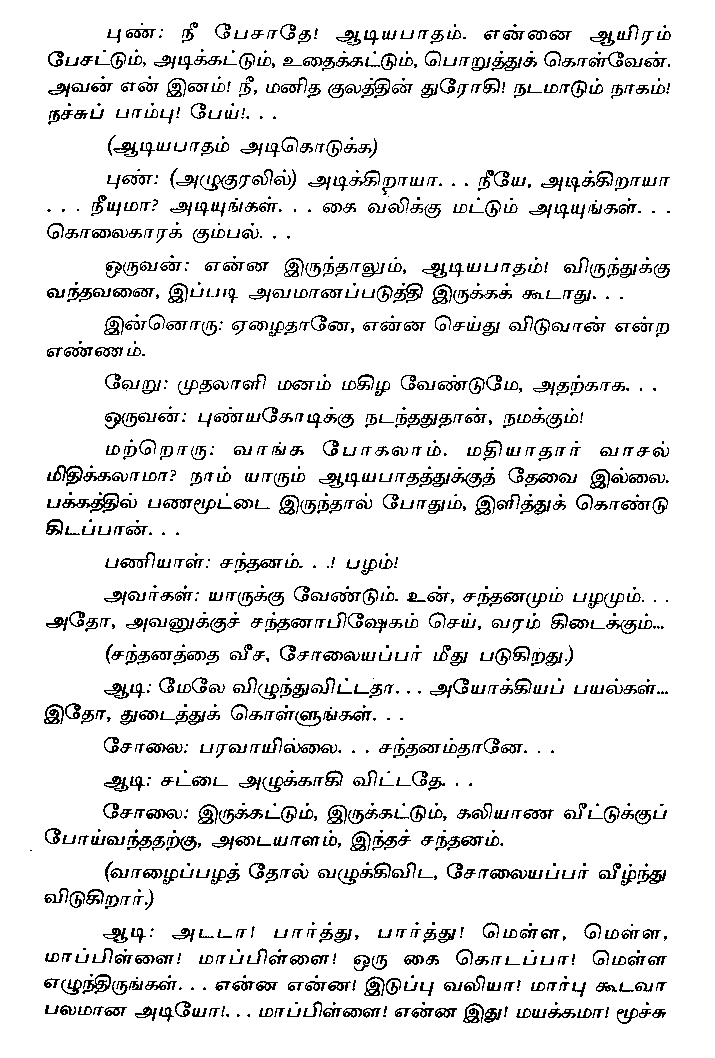 புண்: நீ பேசாதே! ஆடியபாதம். என்னை ஆயிரம்
பேசட்டும், அடிக்கட்டும், உதைக்கட்டும், பொறுத்துக் கொள்வேன்.
அவன் என் இனம்! நீ, மனித குலத்தின் துரோகி! நடமாடும் நாகம்!
நச்சுப் பாம்பு! பேய்!. . .
(ஆடியபாதம் அடிகொடுக்க)
புண்: (அழுகுரலில்) அடிக்கிறாயா. . . நீயே, அடிக்கிறாயா
. . . நீயுமா? அடியுங்கள். . . கை வலிக்கு மட்டும் அடியுங்கள். . .
கொலைகாரக் கும்பல். . .
ஒருவன்: என்ன இருந்தாலும், ஆடியபாதம்! விருந்துக்கு
வந்தவனை, இப்படி அவமானப்படுத்தி இருக்கக் கூடாது. . .
இன்னொரு: ஏழைதானே, என்ன செய்து விடுவான் என்ற
எண்ணம்.
வேறு: முதலாளி மனம் மகிழ வேண்டுமே, அதற்காக. . .
ஒருவன்: புண்யகோடிக்கு நடந்ததுதான், நமக்கும்!
மற்றொரு: வாங்க போகலாம். மதியாதார் வாசல்
மிதிக்கலாமா? நாம் யாரும் ஆடியபாதத்துக்குத் தேவை இல்லை.
பக்கத்தில் பணமூட்டை இருந்தால் போதும், இளித்துக் கொண்டு
கிடப்பான். . .
பணியாள்: சந்தனம். . .! பழம்!
அவர்கள்: யாருக்கு வேண்டும். உன், சந்தனமும் பழமும். . .
அதோ, அவனுக்குச் சந்தனாபிஷேகம் செய், வரம் கிடைக்கும்...
(சந்தனத்தை வீச, சோலையப்பர் மீது படுகிறது.)
ஆடி: மேலே விழுந்துவிட்டதா. . . அயோக்கியப் பயல்கள்...
இதோ, துடைத்துக் கொள்ளுங்கள். . .
சோலை: பரவாயில்லை. . . சந்தனம்தானே. . .
ஆடி: சட்டை அழுக்காகி விட்டதே. . .
சோலை: இருக்கட்டும், இருக்கட்டும், கலியாண வீட்டுக்குப்
போய்வந்ததற்கு, அடையாளம், இந்தச் சந்தனம்.
(வாழைப்பழத் தோல் வழுக்கிவிட, சோலையப்பர் வீழ்ந்து
விடுகிறார்.)
ஆடி: அடடா! பார்த்து, பார்த்து! மெள்ள, மெள்ள,
மாப்பிள்ளை! மாப்பிள்ளை! ஒரு கை கொடப்பா! மெள்ள
எழுந்திருங்கள். . . என்ன என்ன! இடுப்பு வலியா! மார்பு கூடவா
பலமான அடியோ!. . . மாப்பிள்ளை! என்ன இது! மயக்கமா! மூச்சு